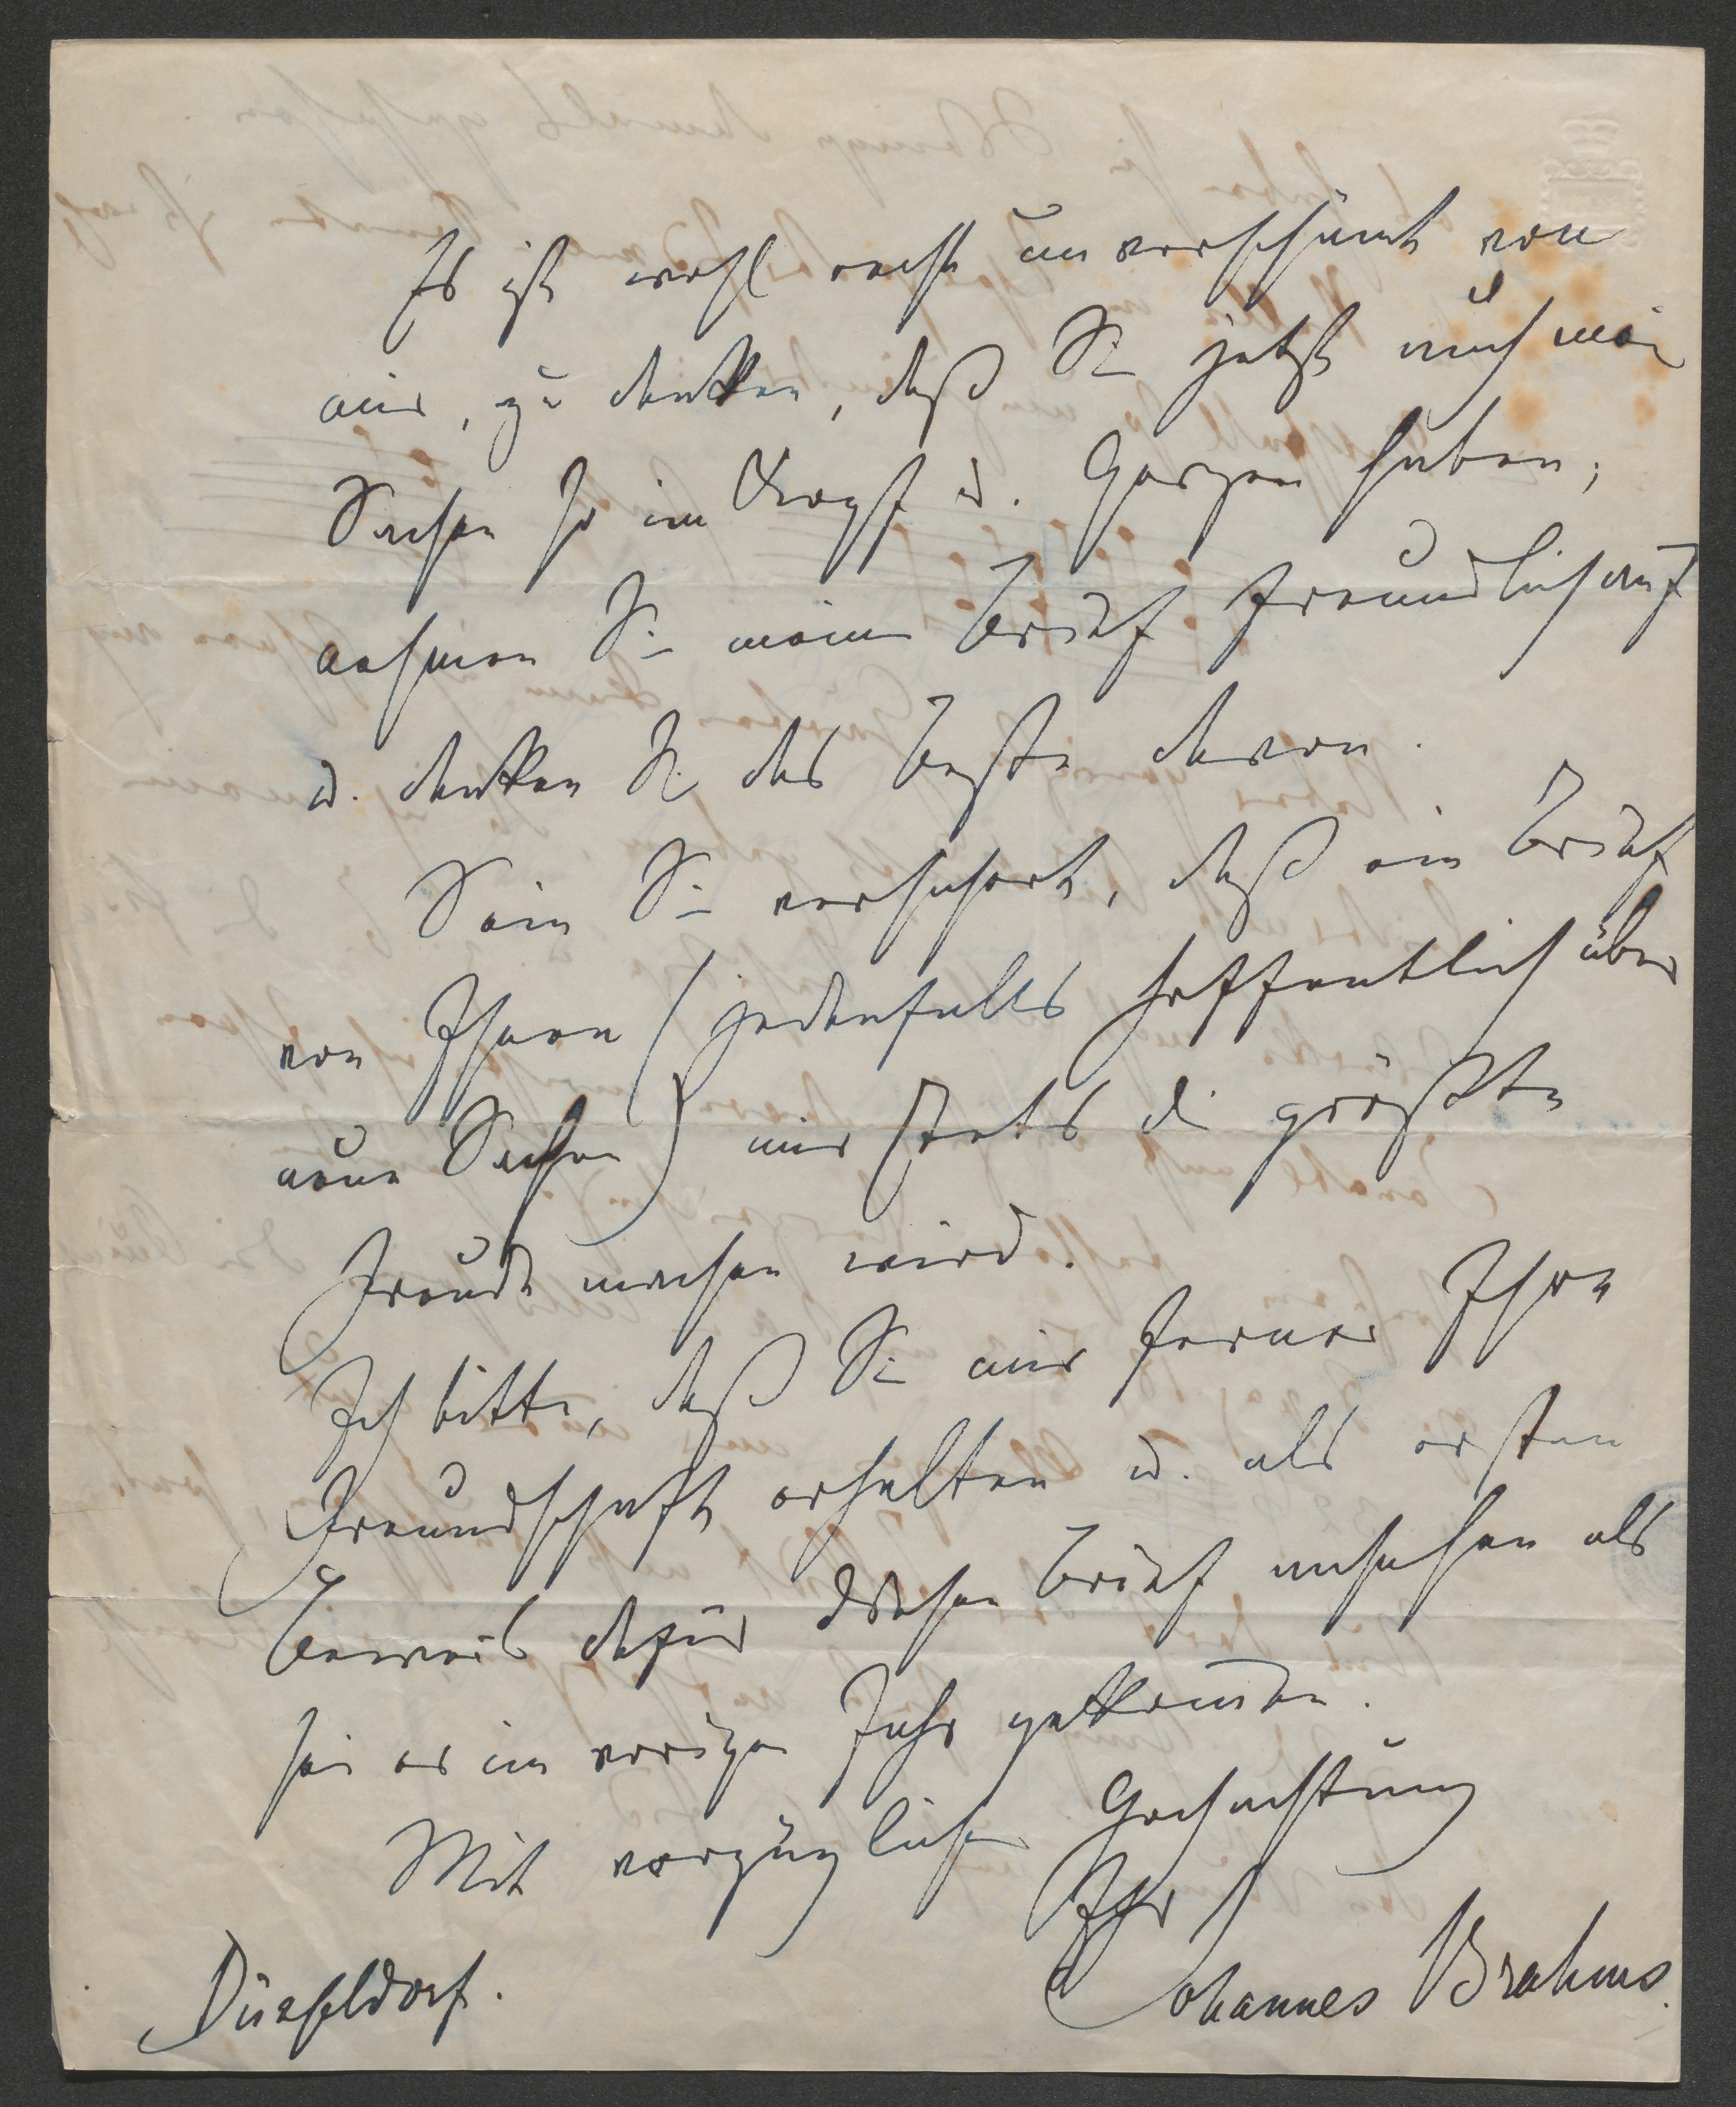 Es ist wohl recht unverschämt von
mir, zu denken, daß Sie jetzt auch mei
Sachen so im Kopf u. Herzen haben;
nehmen Sie meinen Brief freundlich auf
u. denken Sie das Beste davon.
Sein Sie versichert, daß ein Brief
von Ihnen (jedenfalls hoffentlich über
neue Sachen) mir stets die größte
Freude machen wird.
Ich bitte, daß Sie mir ferner Ihre
Freundschaft erhalten u. als ersten
Beweis dafür diesen Brief ansehen als
sei er im vorigen Jahr gekommen.
Mit vorzüglicher Hochachtung
Ihr
Düsseldorf.
Johannes Brahms.